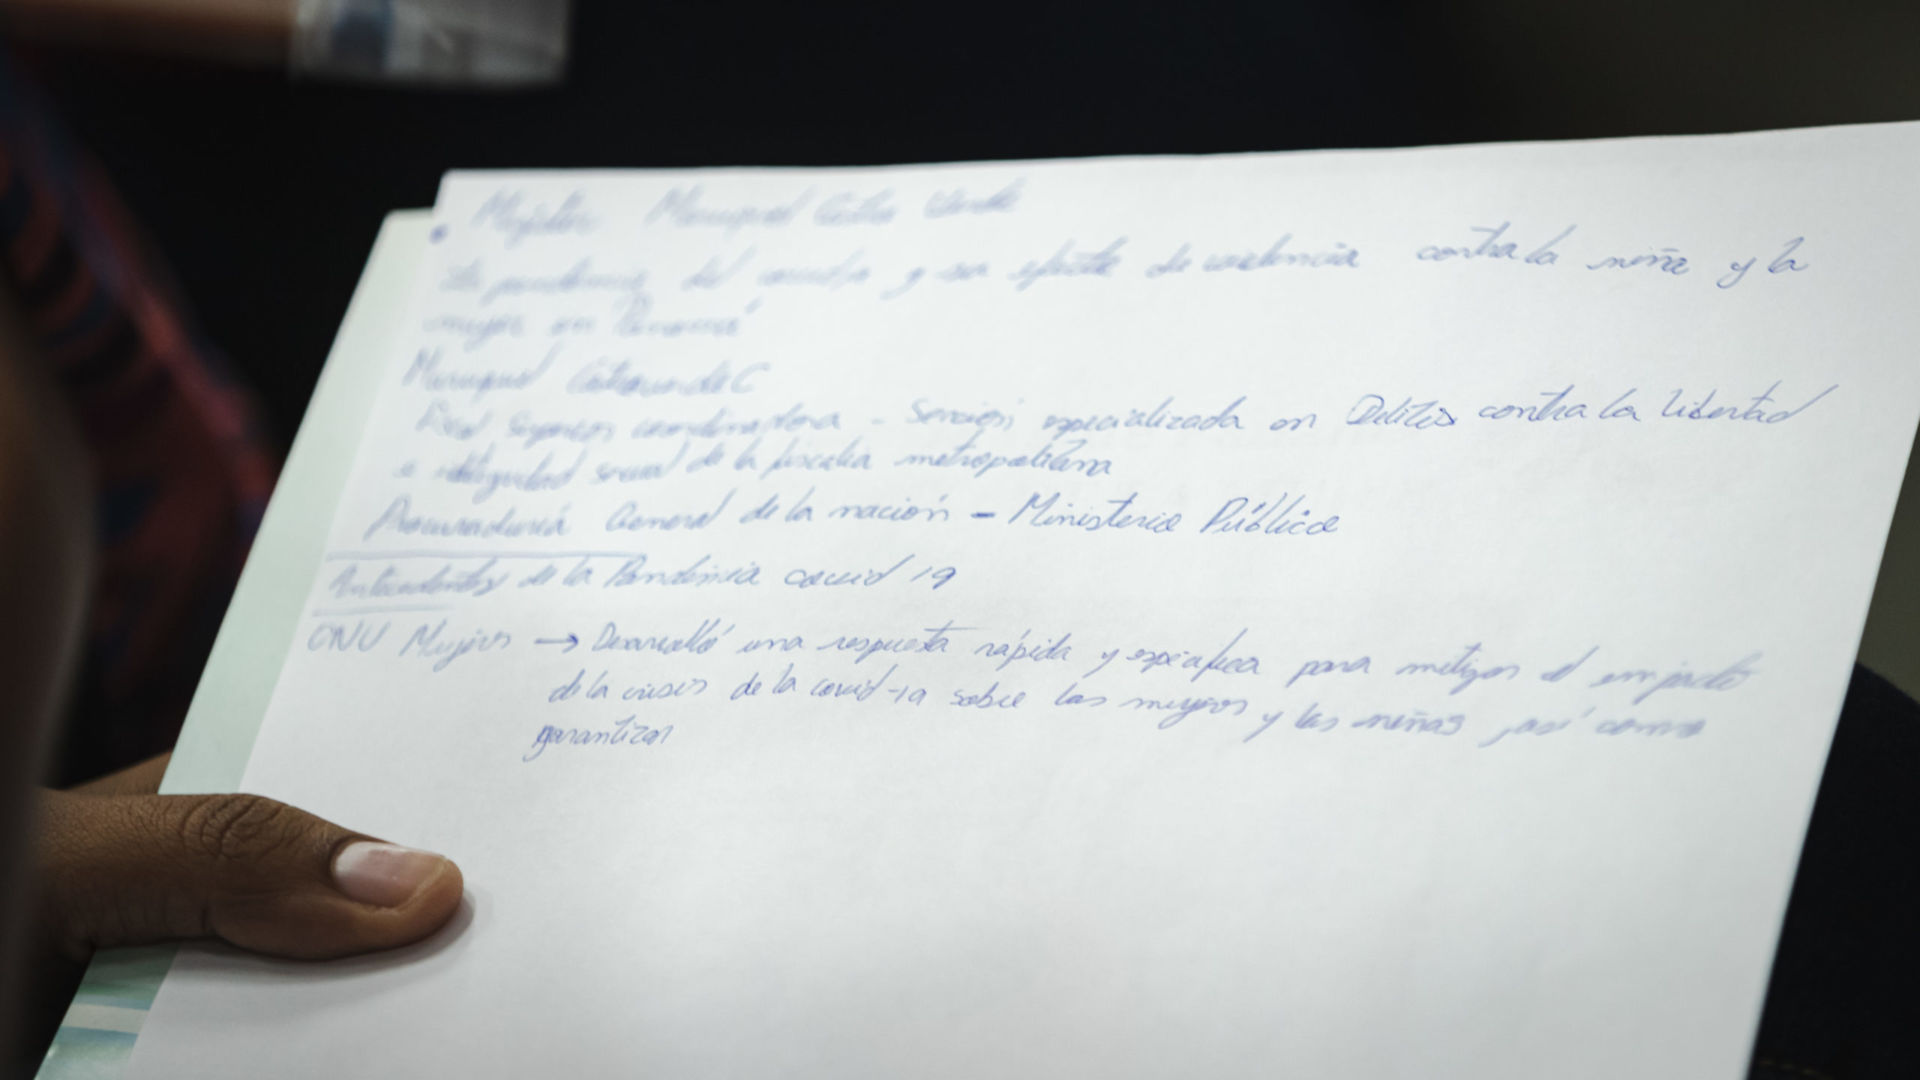 Maruquel
La pandemia del covid y sus efectos de violencia contra la niña y la
mujer en Panamá
Maruquel C
Fiscal Superior coordinadora - Sección especializada en Delitos contra la libertad
e integridad sexual de la fiscalia metropolitana
Procuraduría General de la nación - Ministerio Público
Antecedentes de la Pandemia covid 19
ONU Mujeres → Desarrolló una respuesta rápida y específica para mitigar el impacto
de la crisis de la covid-19 sobre las mujeres y las niñas, así como
garantizar